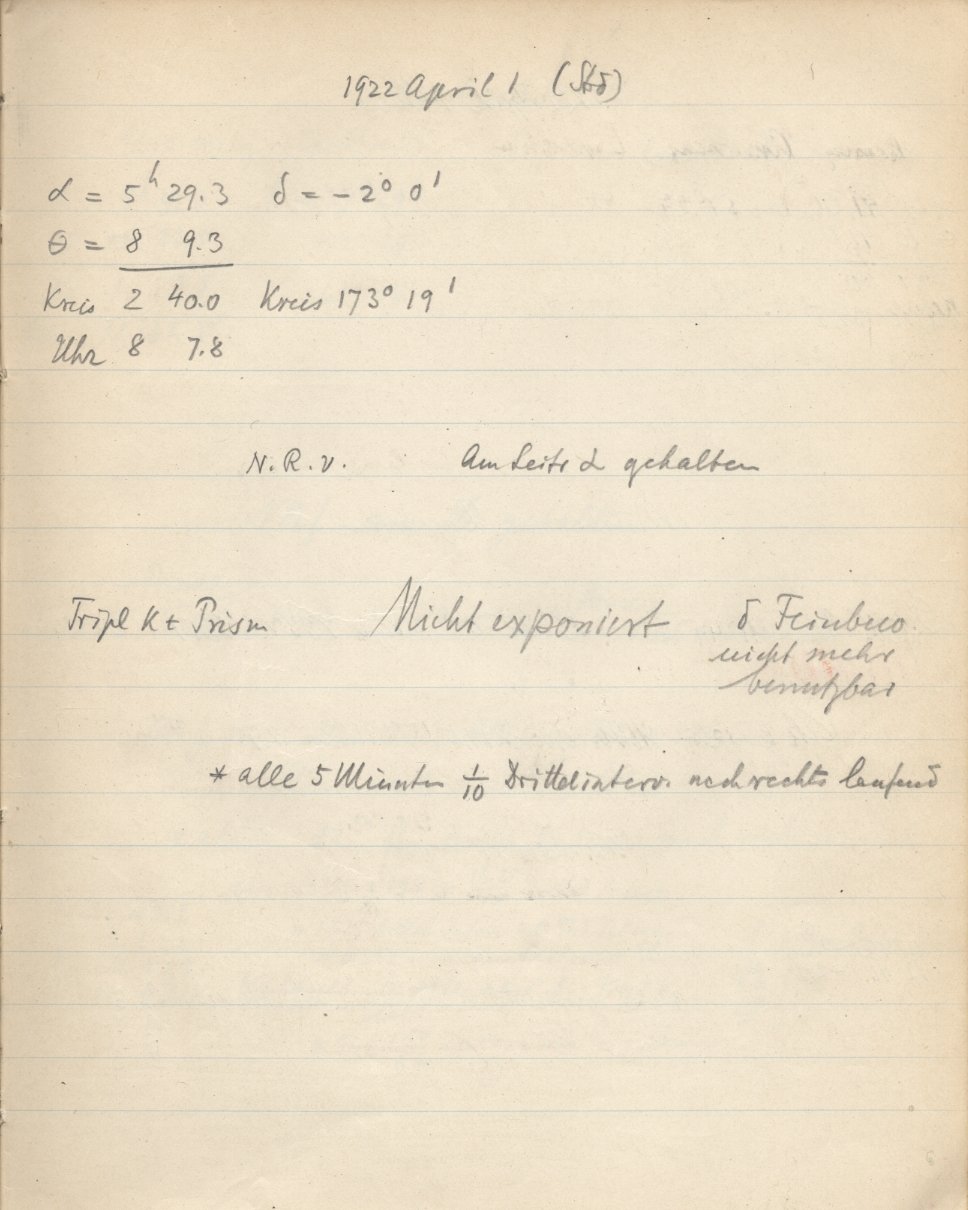 1922 April 1 (Stö)
α = 5ʰ 29.3 δ = − 2° 0'
θ = 8 9.3
Kreis 2 40.0 Kreis 173° 19'
Uhr 8 7.8
N. R. v. Am Leitr α gehalten
Tripl K + Prism Nicht exponiert δ Feinbew.
nicht mehr
benutzbar
* alle 5 Minuten 1/10 Drittelinterv. nach rechts laufend